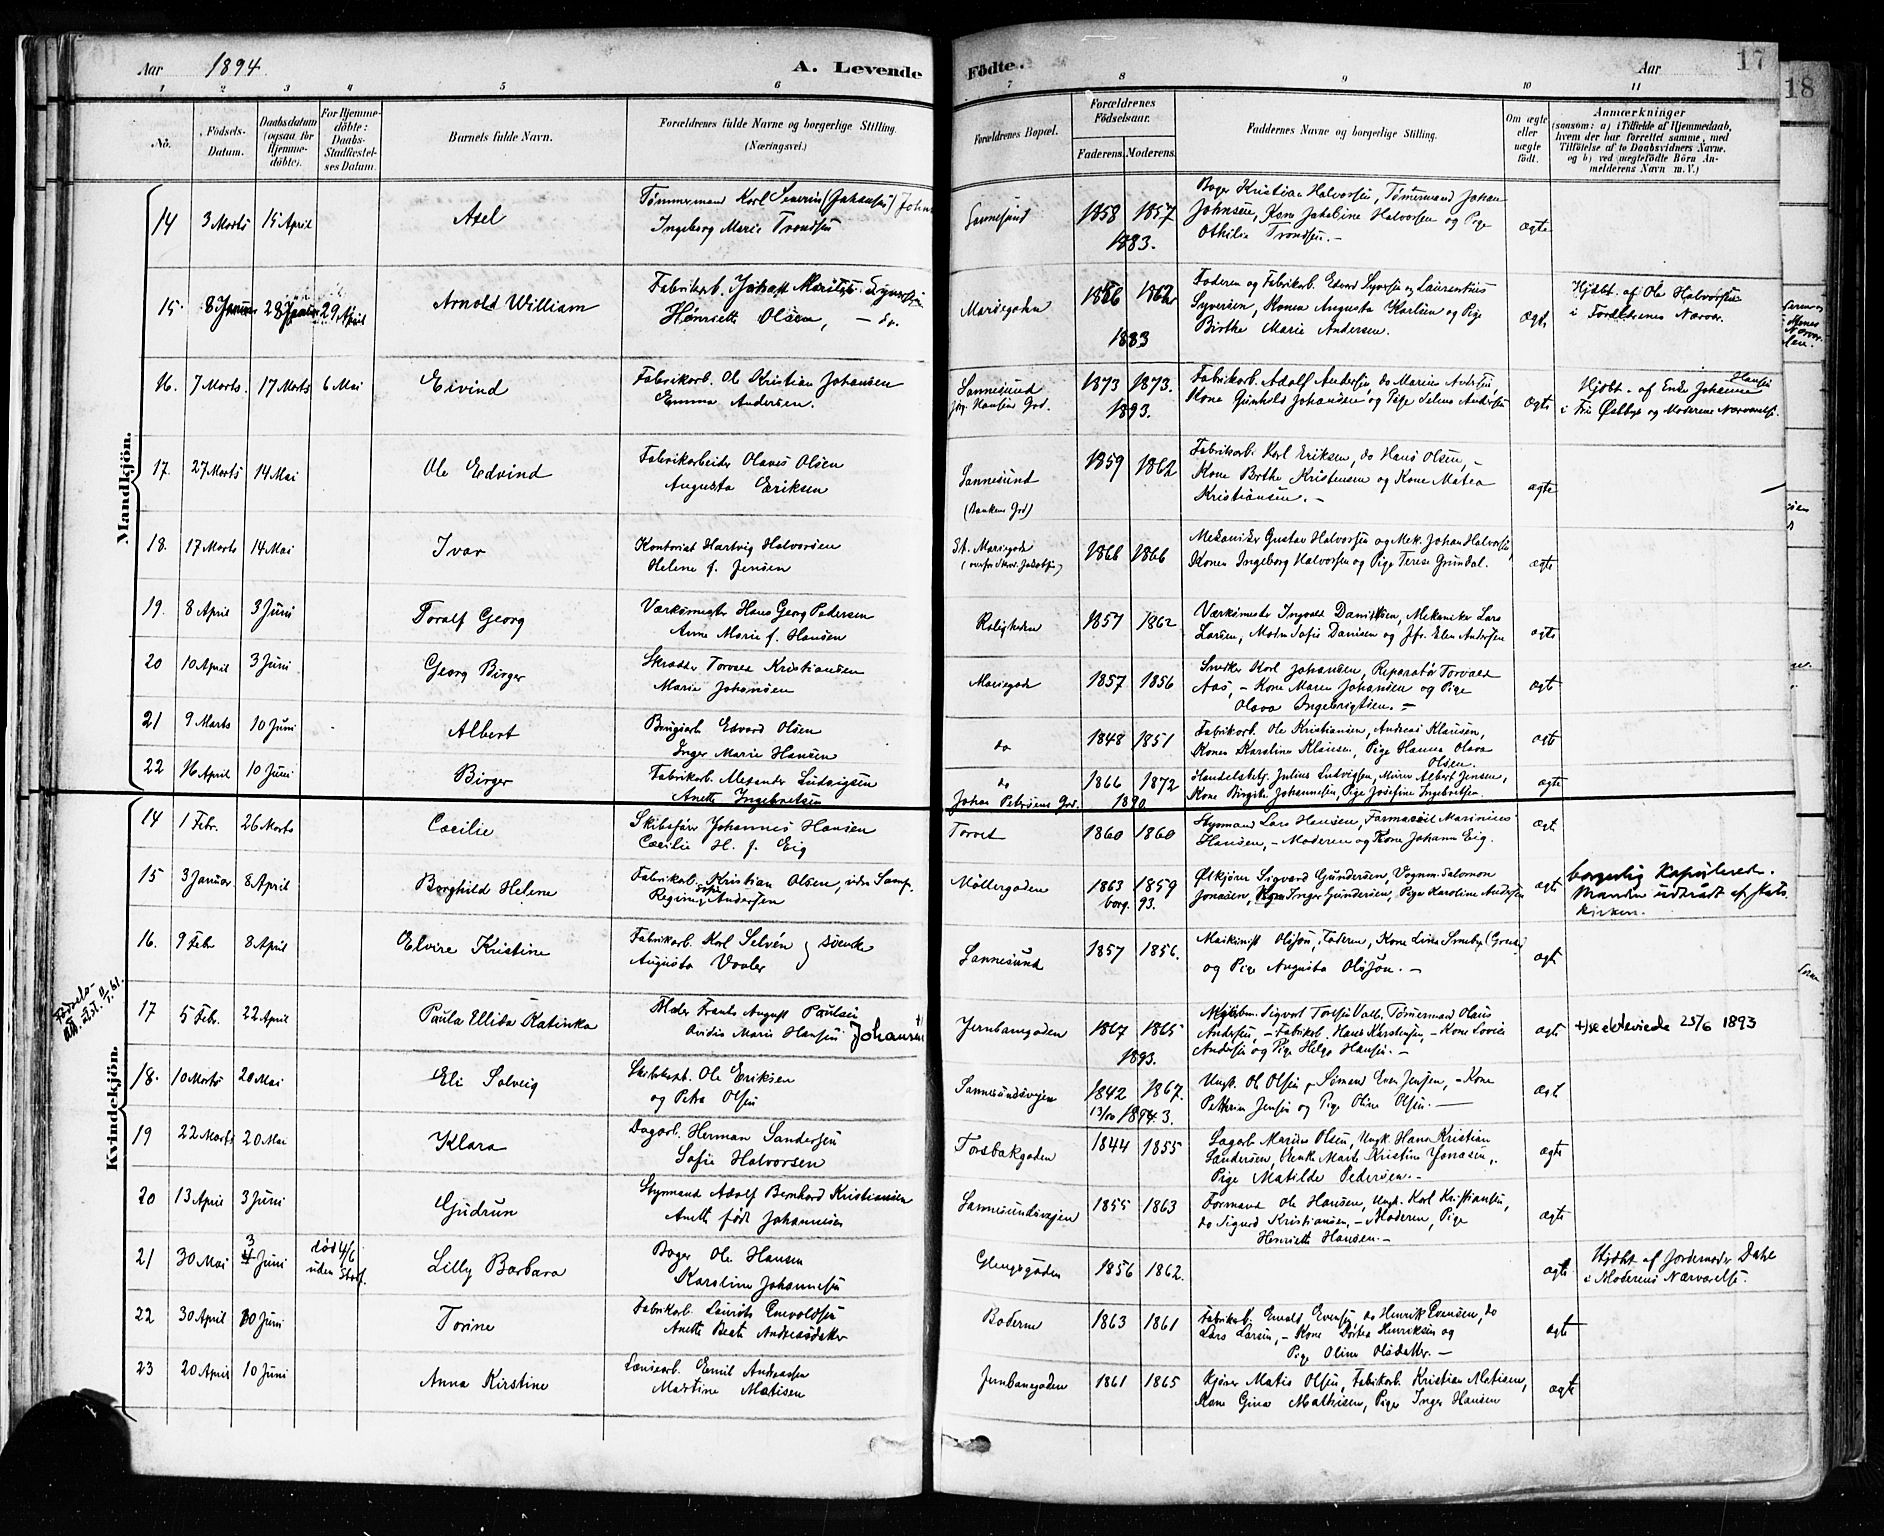 Aar 1894. A. Levende Födte. Aar 17
18
1 2 3 4 5 6 7 8 9 10 11
No. Födsels-Datum. Daabsdatum (ogsaa for Hjemme-döbte). For Hjemme-döbte: Daabs-Stadfæstel-ses Datum. Barnets fulde Navn. Forældrenes fulde Navne og borgerlige Stilling. (Næringsvei.) Forældrenes Bopæl. Forældrenes Födselsaar. Faderens. Moderens. Faddernes Navne og borgerlige Stilling. Om ægte eller uægte födt. Anmærkninger (saasom: a) i Tilfælde af Hjemmedaab, hvem der har forrettet samme, med Tilföielse af to Daabsvidners Navne, og b) ved uægtefödte Börn An-melderens Navn m. V.)
Mandkjön.
14 3 Marts 15 April Axel Tømmermand Karl Severin (Johansen) Sannesund 1858 1857 Bager Kristian Halvorsen, Tømmermand Johan
Ingeborg Marie Trondsen 1883. Johnsen, Kone Jakobine Halvorsen og Pige
Othilie Trondsen. ægte
15. 8 Januar 28 29 April Arnold William Fabrikarb. Johan Syversen Mariegaden 1862 Faderen og Fabrikarb. Edvard Syversen og Laurentius Hjdbt. af Ole Halvorsen
Henriette Olsen, - do. 1883 Syversen, Konen Augusta Karlsen og Pige ægte i Forældrenes Nærvær.
Birthe Marie Andersen.
16. 7 Marts 17 Marts 6 Mai Eivind Fabrikarb. Ole Kristian Johansen Sannesund 1873 1873. Fabrikarb. Adolf Andersen, do Marius Andersen, Hjdbt. af Enke Johanne Hansen
Emma Andersen. Jørg. Hansens Grd. 1893. Kone Gunhild Johansen og Pige Selma Andersen ægte i Fru Østbys og Moderens Nærværelse.
17. 27 Marts 14 Mai Ole Edvind Fabrikarbeider Olaves Olsen Sannesund 1859 1862 Fabrikarb. Karl Eriksen, do Hans Olsen, -
Augusta Eriksen (Bankens Grd) Kone Berthe Kristensen og Kone Matea
Kristiansen. - ægte
18. 17 Marts 14 Mai Ivar Kontorist Hartvig Halvorsen St. Mariegade 1866 1866 Mekaniker Gustav Halvorsen og Mek. Johan Halvorsen,
Helene f. Jensen Konen Ingeborg Halvorsen og Pige Terese Grundal. ægte
19. 8 April 3 Juni Toralf Georg Værksmester Hans Georg Pedersen Roligheden 1857 1862 Værksmester Ingvald Danielsen, Mekaniker Lars
Anne Marie f. Hansen Larsen, Madm Sofie Danisen og Jfr. Elen Andersen ægte
20 10 April 3 Juni Georg Birger Skrædder Torvald Kristiansen Mariegade 1857 1856 Snedker Karl Johansen, Reparatør Torvald
Marie Johansen Aas, - Kone Maren Johansen og Pige ægte
Olava Ingebrigtsen. -
21 9 Marts 10 Juni Albert Brugsarb Edvard Olsen do 1848 1851 Fabrikarb. Ole Kristiansen, Andreas Klausen, ægte
Inger Marie Hansen Konen Karoline Klausen, Pige Hanna Olava
Olsen.
22 16 April 10 Juni Birger Fabrikarb. Alexander Ludvigsen do 1866 1872 Handelsbetj. Julius Ludvigsen, Murer Albert Jensen, ægte
Anette Ingebretsen Johan Petersens Grd. 1890 Kone Birgithe Johannesen, Pige Josefine Ingebretsen.
Kvindekjön.
14 1 Febr. 26 Marts Cæcilie Skibsfører Johannes Hansen Torvet 1860 1860 Styrmand Lars Hansen, Farmaceut Marinius ægte
Cæcilie H. f. Eig Hansen, - Moderen og Kone Johanne Eig.
15 3 Januar 8 April Borghild Helene Fabrikarb. Kristian Olsen, uden Samf. Møllergaden 1863 1859 Ølkjører Sigvard Gundersen, Vognm. Salomon ægte borgerlig kopulerede.
Regine Sofie Andersen borg. 93. Jonasen, Kone Inger Gundersen, Pige Karoline Andersen Manden udtraadt af Stats
kirken.
16. 9 Febr 8 April Elvire Kristine Fabrikarb. Karl Selvén } Svenske Sannesund 1857 1856. Maskinist Olsson, Faderen, Kone Lina
Augusta Vaaler og Pige Augusta Olsson. - ægte
Fødsels-
att. utst.
17 5 Feb. 22 April Paula Ellida Katinka Maler Frants August Paulsen Jernbanegaden 1867 1865 Tømmermand Olaus
Marie Hansen Johansen 1893. Andersen, - Fabrikarb. Hans Karstensen, - Kone Lovise ægte +) se ekteviede 25/6 1893
Andersen og Pige Helga Hansen. -
18. 10 Marts 20 Mai Eli Solveig Ole Eriksen Sannesundsveien 1842 1867. Ungk. Ol Olsen, Sømand Even Jensen, - Kone ægt
og Petra Olsen 1894 3. Pettrine Jensen og Pige Oline Olsen. -
19 22 Marts 20 Mai Klara Dagarb. Herman Sandersen Torsbakgaden 1844 1855 Sagarb Marius Olsen, Ungk. Hans Kristian
Sofie Halvorsen Sandersen, Enke Marte Kristine Jonasen, ægte
Pige Matilde Pedersen. -
20 13 April 3 Juni Gudrun Styrmand Adolf Bernhard Kristiansen Sannesundsveien 1855 1863 Formand Ole Hansen, Ungk. Karl Kristiansen,
Anette født Johannesen do Sigurd Kristiansen, - Moderen, Pige ægte
Henriette Hansen. -
21 30 Mai 3 Juni død 4/6 uden Stadf. Lilly Barbara Bager Ole Hansen Glengsgaden 1856 1862. ægte Hjdbt af Jordemoder Dahl
Karoline Johannesen i Moderens Nærværelse.
22 30 April 10 Juni Torine Fabrikarb. Laurits Enevoldsen Boderne 1863 1861 Fabrikarb. Enevald Evensen, do Henrik Evensen, do
Anette Beate Andreasdatter Lars Larsen, - Kone Dortea Henriksen og ægte
Pige Oline Olsdatter. -
23 20 April 10 Juni Anna Kirstine Lænsearb. Emil Andreasen Jernbanegaden 1861 1865 Kjører Matis Olsen, Fabrikarb. Kristian Matisen,
Martine Matisen Kone Gina Mathisen, Pige Inger Hansen ægte